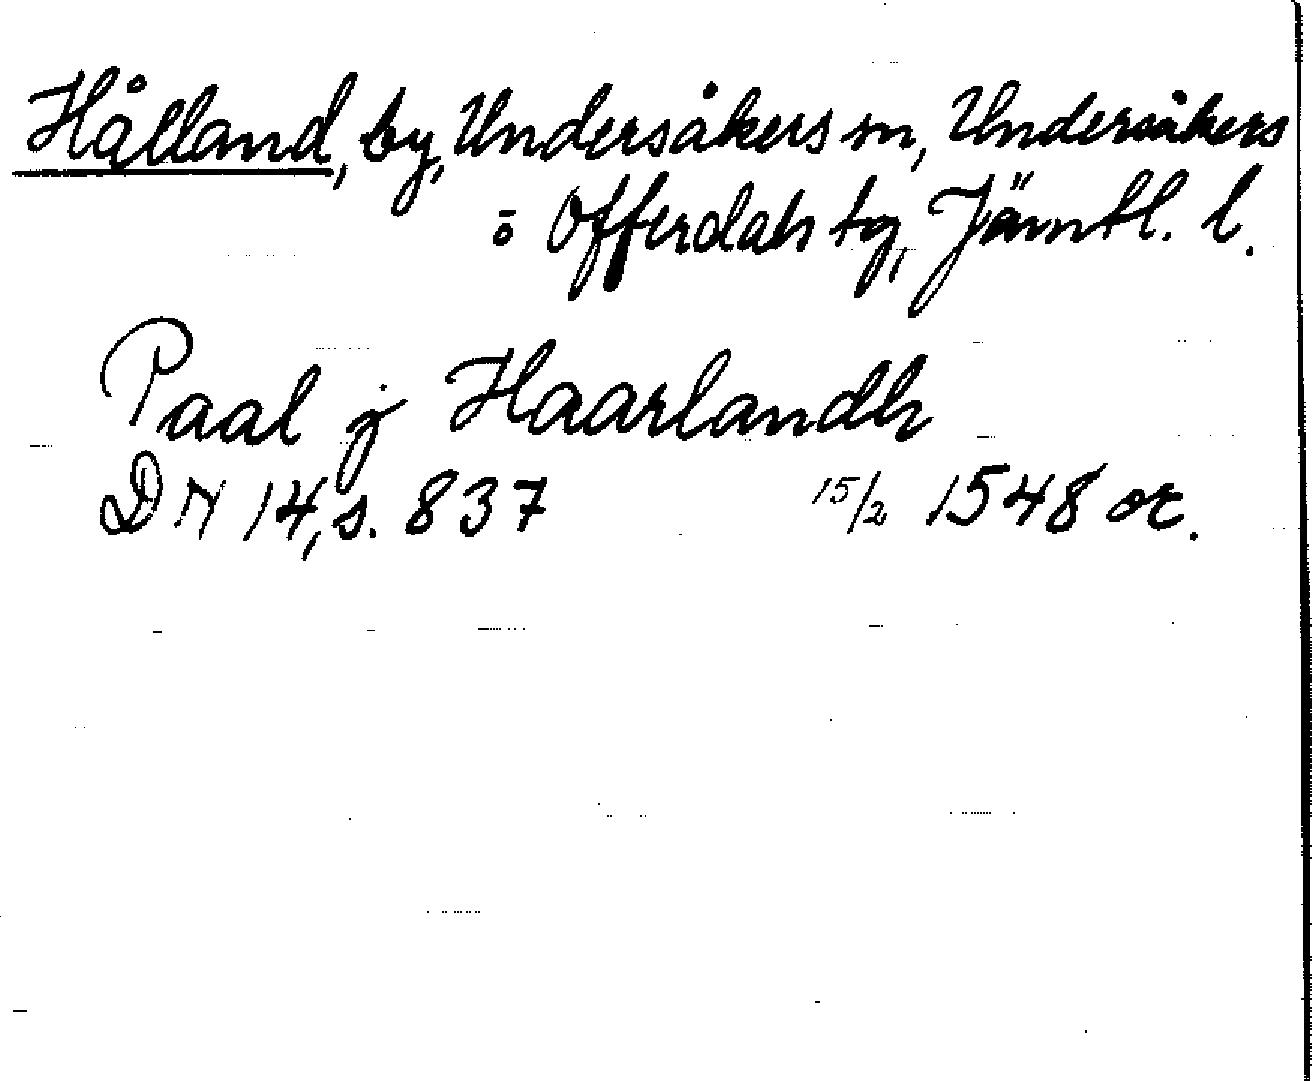 Hålland, by, Undersåkers sn, Undersåkers
o Offerdals tg, Jämtl. l.
Paal j Haarlandh
DN 14, s. 837 15/2 1548 or.